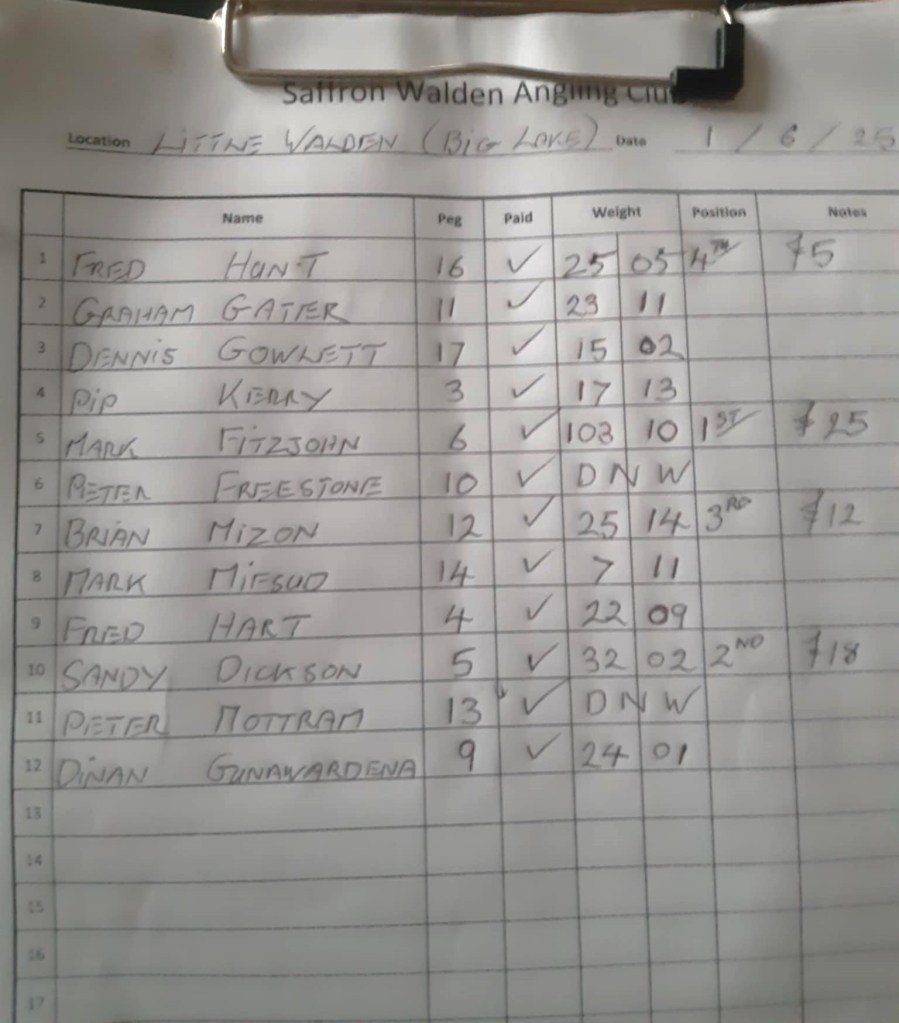 Saffron Walden Angling Club
Location LITTLE WALDEN (BIG LAKE) Date 1 / 6 / 25
Name Peg Paid Weight Position Notes
1 FRED HUNT 16 ✓ 25 05 4TH £5
2 GRAHAM GATER 11 ✓ 23 11
3 DENNIS GOWLETT 17 ✓ 15 02
4 PIP KERRY 3 ✓ 17 13
5 MARK FITZJOHN 6 ✓ 103 10 1ST £25
6 PETER FREESTONE 10 ✓ D N W
7 BRIAN MIZON 12 ✓ 25 14 3RD £12
8 MARK MIFSUD 14 ✓ 7 11
9 FRED HART 4 ✓ 22 09
10 SANDY DICKSON 5 ✓ 32 02 2ND £18
11 PETER MOTTRAM 13 ✓ D N W
12 DINAN GUNAWARDENA 9 ✓ 24 01
13
14
15
16
17